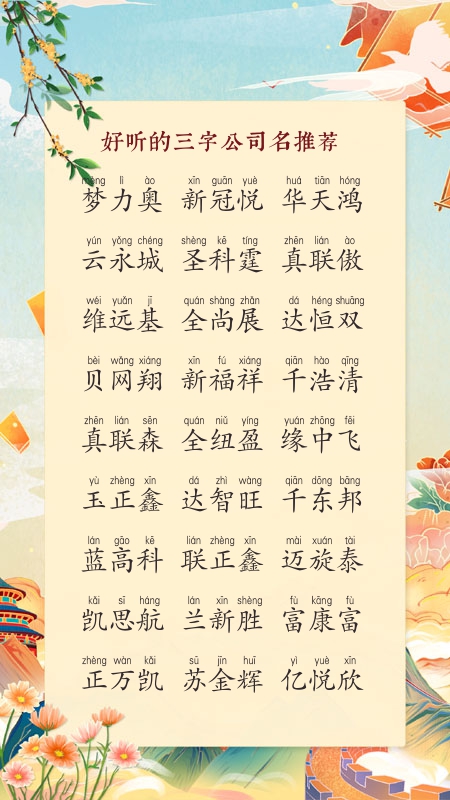 好听的三字公司名推荐
mèng lì ào xīn guān yuè huá tiān hóng
梦力奥 新冠悦 华天鸿
yún yǒng chéng shèng kē tíng zhēn lián ào
云永城 圣科霆 真联傲
wéi yuǎn jī quán shàng zhǎn dá héng shuāng
维远基 全尚展 达恒双
bèi wǎng xiáng xīn fú xiáng qiān hào qīng
贝网翔 新福祥 千浩清
zhēn lián sēn quán niǔ yíng yuán zhōng fēi
真联森 全纽盈 缘中飞
yù zhèng xīn dá zhì wàng qiān dōng bāng
玉正鑫 达智旺 千东邦
lán gāo kē lián zhèng xīn mài xuán tài
蓝高科 联正鑫 迈旋泰
kǎi sī háng lán xīn shèng fù kāng fù
凯思航 兰新胜 富康富
zhèng wàn kǎi sū jīn huī yì yuè xīn
正万凯 苏金辉 亿悦欣